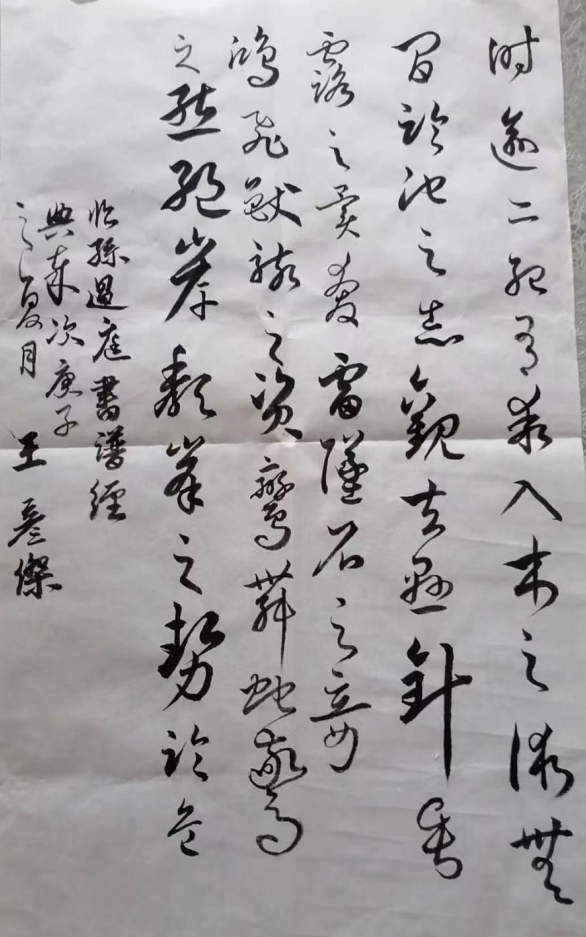 时逾二紀有乖入木之術無
間臨池之志觀夫懸針垂
露之異奔雷墜石之奇
鴻飛獸駭之資鸞舞蛇驚
之態絕岸頹峯之勢臨危
臨孫過庭書譜經
典次庚子
之夏月
王彦傑